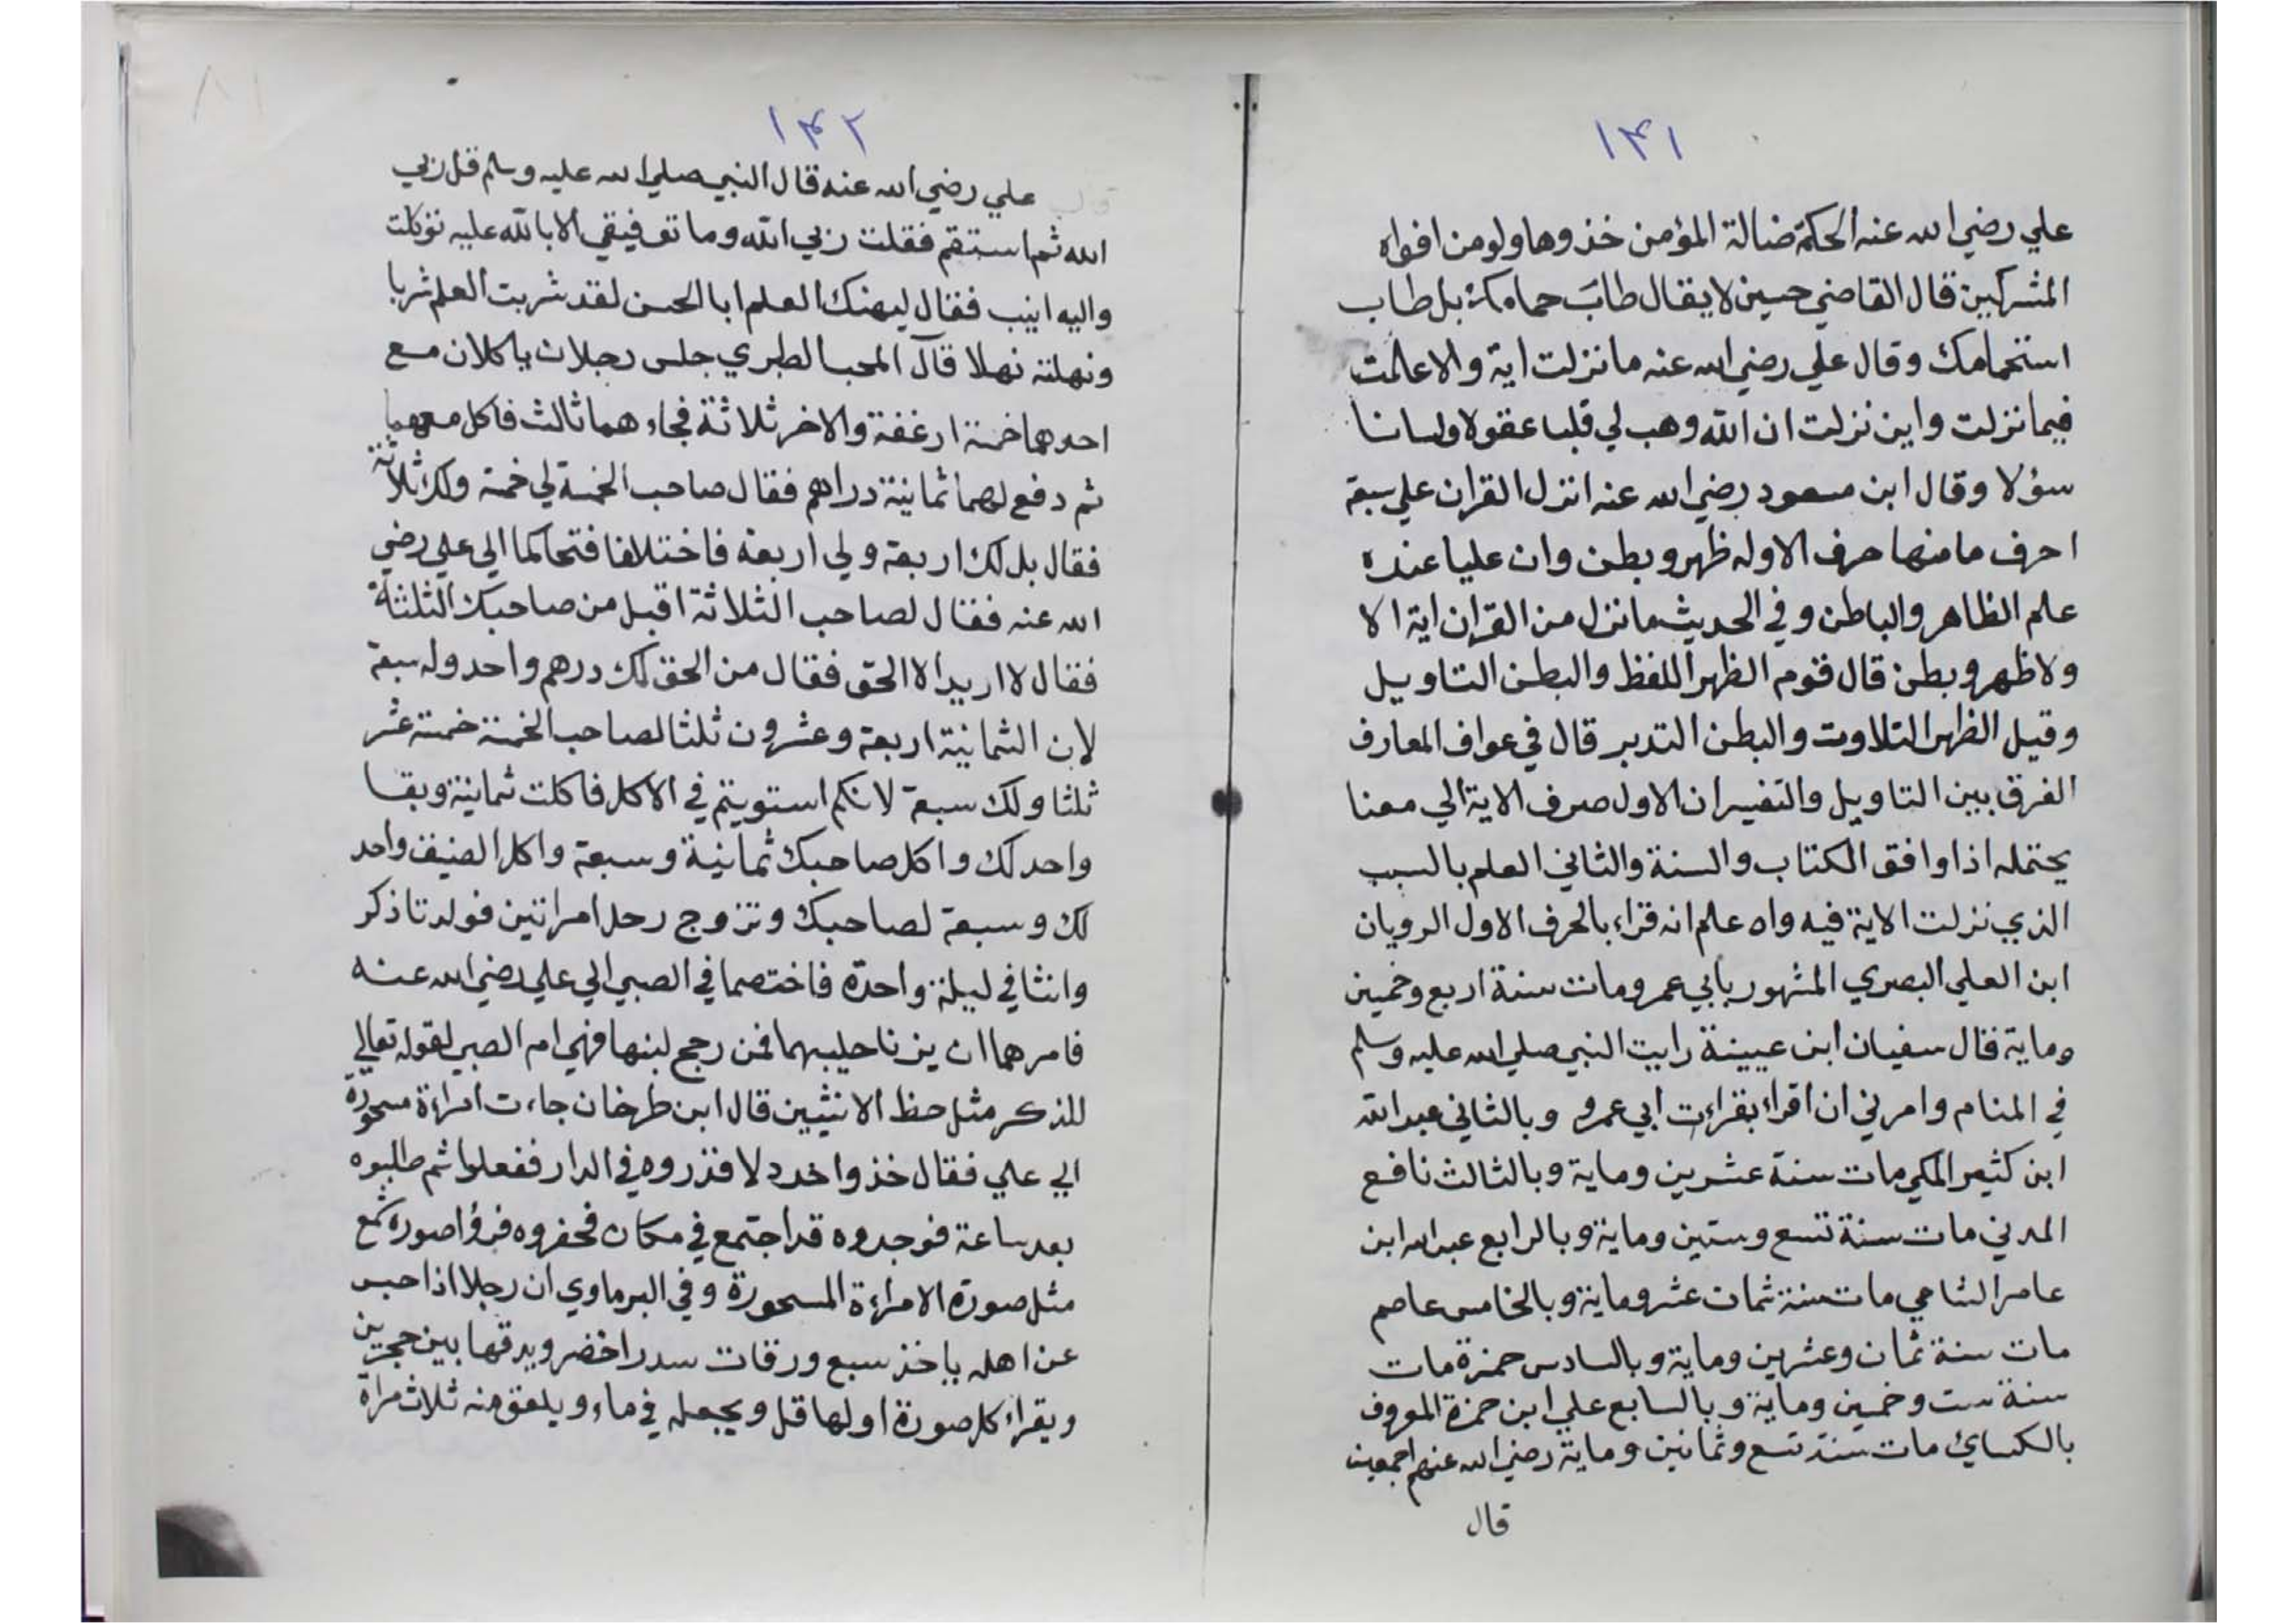 ١٣١
علي رضي الله عنه الحكمة ضالة المؤمن خذوها ولو من افواه
المشركين قال القاضي حسين لا يقال طابَ حمامك بل طاب
استحمامك وقال علي رضي الله عنه ما نزلت اية والا علمت
فيما نزلت واين نزلت ان الله وهب لي قلبا عقولا ولسانا
سؤلا وقال ابن مسعود رضي الله عنه انزل القران علي سبعة
احرف ما منها حرف الا وله ظهر وبطن وان عليا عنده
علم الظاهر والباطن وفي الحديث ما نزل من القران اية الا
ولا ظهر وبطن قال قوم الظهر اللفظ والبطن التاويل
وقيل الظهر التلاوت والبطن التدبر قال في عواف المعارف
الفرق بين التاويل والتفسير ان الاول صرف الاية الي معنا
يحتمله اذا وافق الكتاب والسنة والثاني العلم بالسبب
الذي نزلت الاية فيه واه علم انه قراء بالحرف الاول الرويان
ابن العلي البصري المشهور بابي عمرو مات سنة اربع وخمسين
وماية قال سفيان ابن عيينة رايت النبي صلي الله عليه وسلم
في المنام وامرني ان اقراء بقراءت ابي عمرو وبالثاني عبد الله
ابن كثير المكي مات سنة عشرين وماية وبالثالث نافع
المدني مات سنة تسع وستين وماية وبالرابع عبد الله ابن
عامر الشامي مات سنة ثمان عشر وماية وبالخامس عاصم
مات سنة ثمان وعشرين وماية وبالسادس حمزة مات
سنة ست وخمسين وماية وبالسابع علي ابن حمزة المعروف
بالكساي مات سنة تسع وثمانين وماية رضي الله عنهم اجمعين
قال
١٣٢
علي رضي الله عنه قال النبي صلي الله عليه وسلم قل ربي
الله ثم استقم فقلت ربي الله وما توفيقي الا بالله عليه توكلت
واليه انيب فقال ليهنك العلم ابا الحسن لقد شربت العلم شربا
ونهلته نهلا قال المحب الطبري جلس رجلان ياكلان مع
احدهما خمسة ارغفة والاخر ثلاثة فجاءهما ثالث فاكل معهما
ثم دفع لهما ثمانية دراهم فقال صاحب الخمسة لي خمسة ولك ثلاثة
فقال بل لك اربعة ولي اربعة فاختلافا فتحاكما الي علي رضي
الله عنه فقال لصاحب الثلاثة اقبل من صاحبك الثلثة
فقال لا اريد الا الحق فقال من الحق لك درهم واحد وله سبعة
لان الثمانية اربعة وعشرون ثلثا لصاحب الخمسة خمسة عشر
ثلثا ولك سبعة لانكم استويتم في الاكل فاكلت ثمانية وبقا
واحد لك واكل صاحبك ثمانية وسبعة واكل الضيف واحد
لك وسبعة لصاحبك وتزوج رجل امراتين فولدتا ذكر
وانثا في ليلة واحدة فاختصما في الصبي الي علي رضي الله عنه
فامرهما ان يزنا حليبهما فمن رجح لبنها فهي ام الصبي لقوله تعالي
للذكر مثل حظ الانثيين قال ابن طرخان جاءت امراءة مسحورة
الي علي فقال خذوا خردلا فذروه في الدار ففعلوا ثم طلبوه
بعد ساعة فوجدوه قد اجتمع في مكان فحفروه فراؤا صورة شمع
مثل صورة الامراءة المسحورة وفي البرماوي ان رجلا اذا حبس
عن اهله ياخذ سبع ورقات سدر اخضر ويدقها بين حجرين
ويقراء كل صورة اولها قل ويجعله في ماء ويلعق منه ثلاث مراة